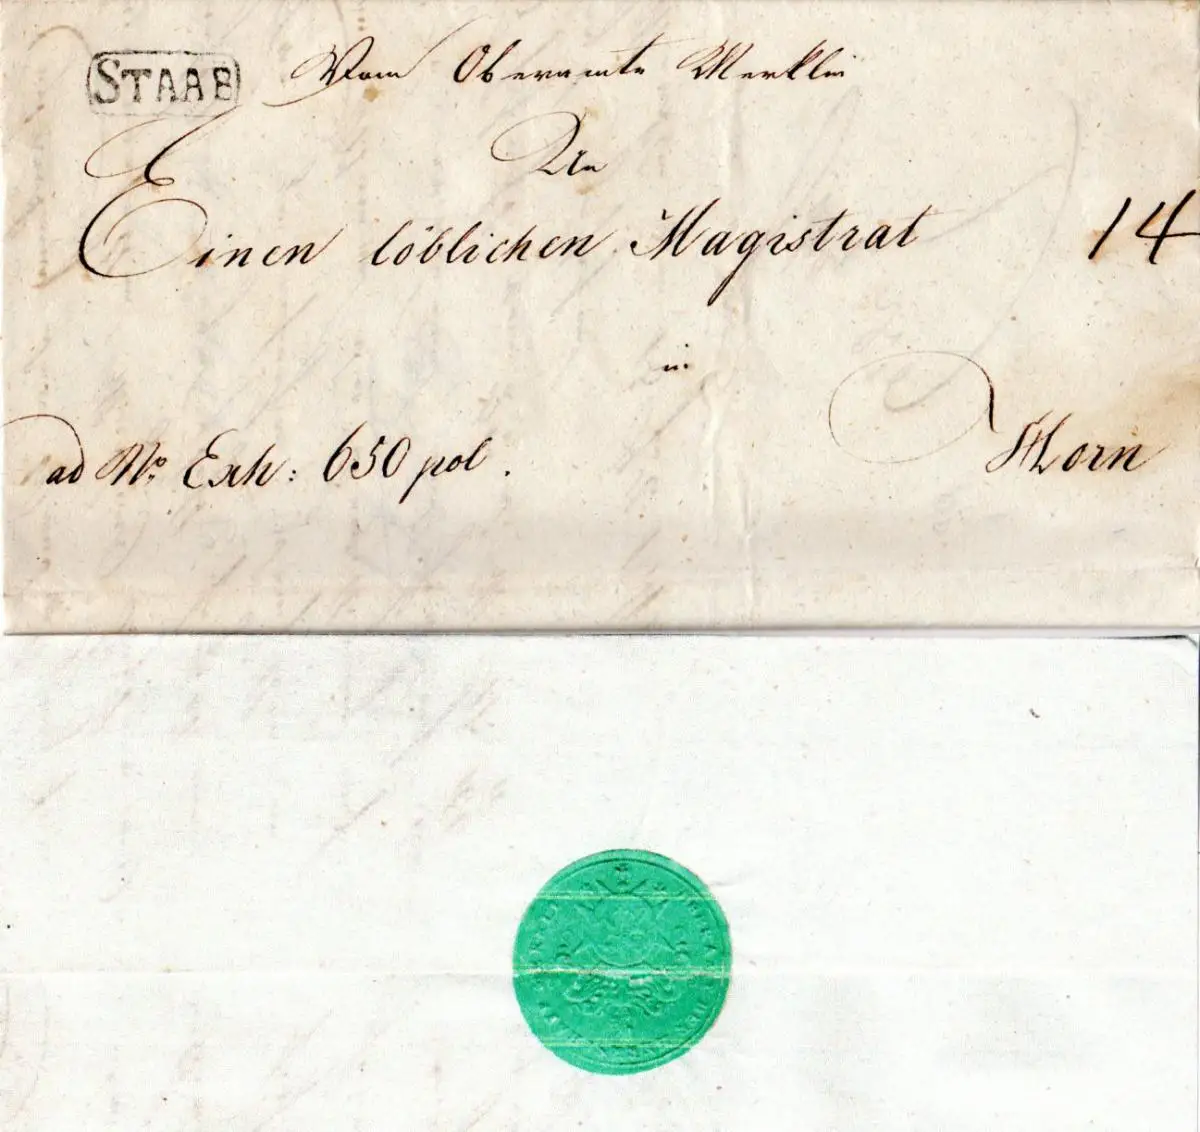 STAAB
Vom Oberamte Merklin
An
Einen löblichen Magistrat
14
in
Horn
ad No. Exh: 650 pol.